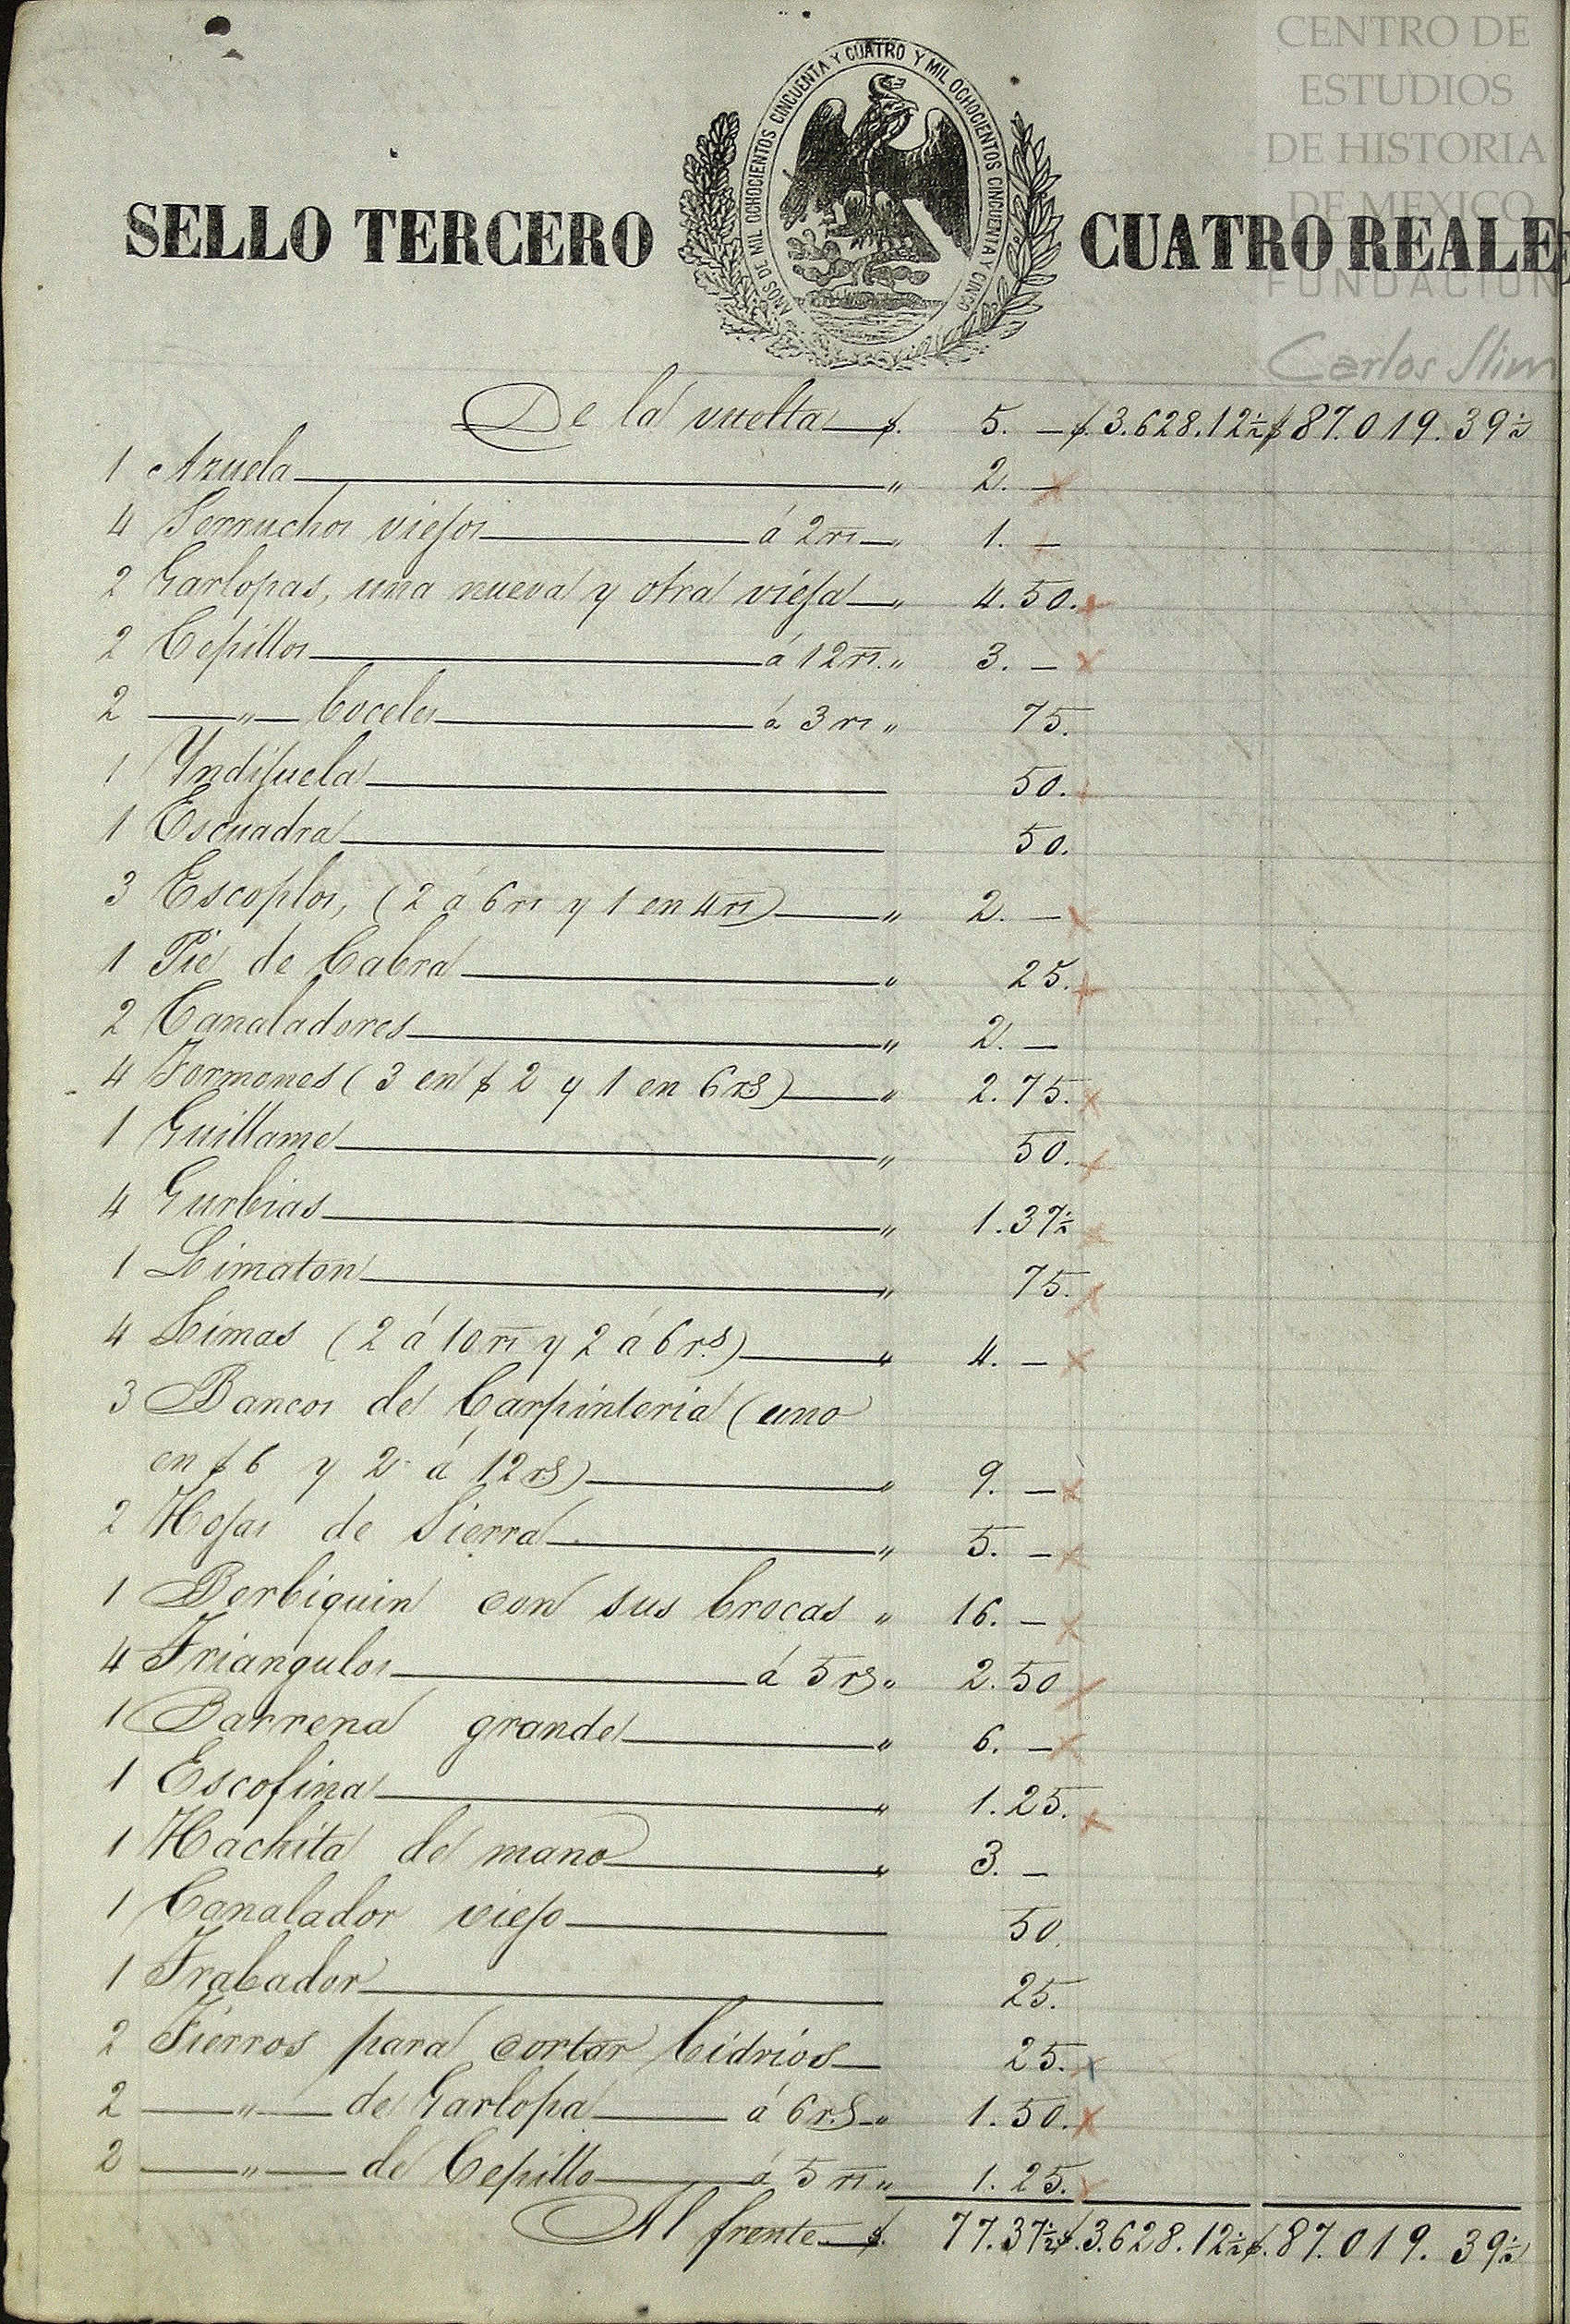 CENTRO DE
ESTUDIOS
DE HISTORIA
DE MEXICO
FUNDACION
Carlos Slim
AÑOS DE MIL OCHOCIENTOS CINCUENTA Y CUATRO Y MIL OCHOCIENTOS CINCUENTA Y CINCO
SELLO TERCERO CUATRO REALE
De la vuelta $. 5. — $. 3.628.12½ $ 87.019.39½
1 Azuela „ 2. —
4 Serruchos viejos á 2 rs „ 1. —
2 Garlopas, una nueva y otra vieja „ 4.50.
2 Cepillos á 12 rs. „ 3. —
2 — „ — boceles á 3 rs „ 75.
1 Yndijuela 50.
1 Escuadra 50.
3 Escoplos, (2 á 6 rs y 1 en 4 rs) „ 2. —
1 Pie de Cabra „ 25.
2 Canaladores „ 2. —
4 Formones (3 en $ 2 y 1 en 6 rs) „ 2.75.
1 Guillame „ 50.
4 Gurbias „ 1.37½
1 Limaton „ 75.
4 Limas (2 á 10 rs y 2 á 6 rs.) „ 4. —
3 Bancos de Carpinteria (uno
en $ 6 y 2 á 12 rs) „ 9. —
2 Hojas de Sierra „ 5. —
1 Berbiquin con sus brocas „ 16. —
4 Triangulos á 5 rs „ 2.50
1 Barrena grande „ 6. —
1 Escofina „ 1.25.
1 Hachita de mano „ 3. —
1 Canalador viejo 50.
1 Trabador 25.
2 Fierros para cortar bidrios 25.
2 — „ — de Garlopa á 6 rs. „ 1.50.
2 — „ — de Cepillo á 5 rs „ 1.25.
Al frente $. 77.37½ $. 3.628.12½ $. 87.019.39½